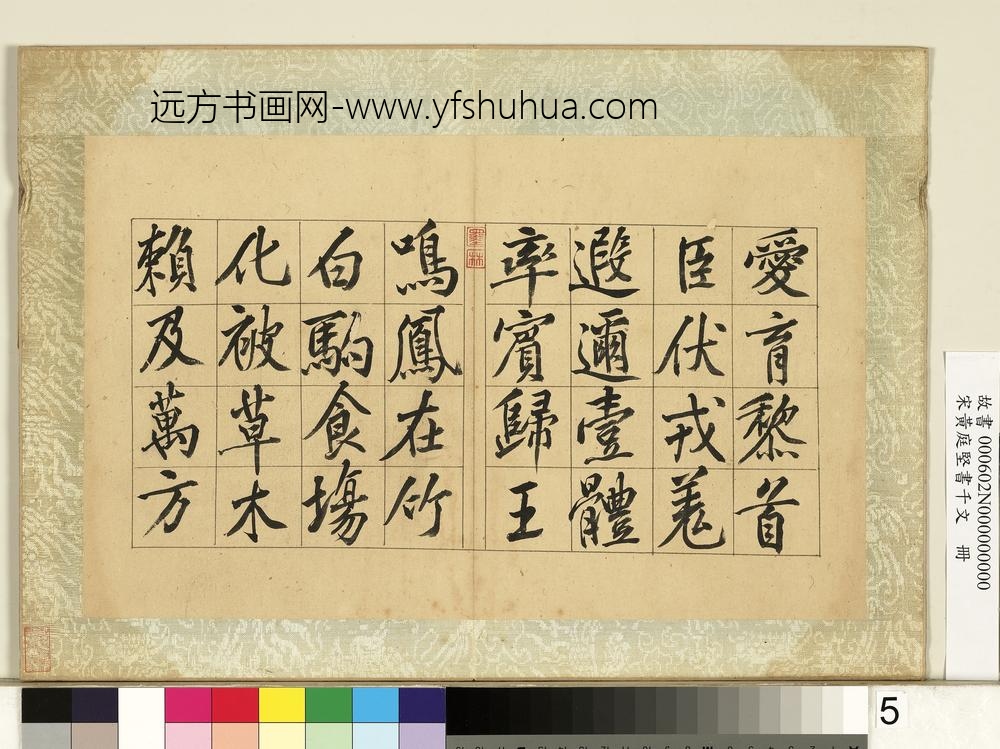 远方书画网-www.yfshuhua.com
愛育黎首
臣伏戎羌
遐邇壹體
率賓歸王
鳴鳳在竹
白駒食場
化被草木
賴及萬方
故書 000602N000000000
宋黃庭堅書千文 冊
5